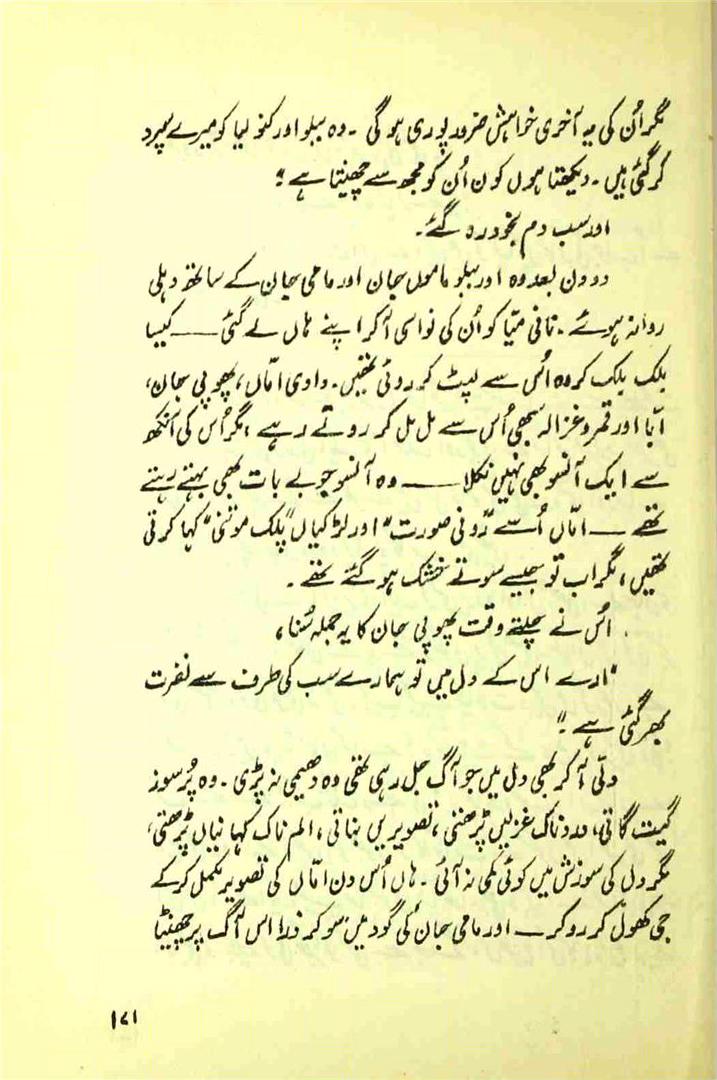 مگر اُن کی یہ آخری خواہش ضرور پوری ہو گی ۔ وہ ببلو اور کنولیا کو میرے سپرد
کر گئی ہیں ۔ دیکھتا ہوں کون اُن کو مجھ سے چھینتا ہے ؟"
اور سب دم بخود رہ گئے ۔
دو دن بعد وہ اور ببلو ماموں جان اور مامی جان کے ساتھ دہلی
روانہ ہوئے ۔ نافی میّا کو اُن کی نواسی آکر اپنے ہاں لے گئی —— کیسا
بلک بلک کر وہ اُس سے لپٹ کر روئی تھیں ۔ دادی امّاں ، پھوپی جان ،
ابّا اور قمر و غزالہ سبھی اُس سے مل مل کر روتے رہے ، مگر اُس کی آنکھ
سے ایک آنسو بھی نہیں نکلا —— وہ آنسو جو بے بات بھی بہنے رہتے
تھے — امّاں اُسے "رَونی صورت" اور لڑکیاں "پلک موتنی" کہا کرتی
تھیں ، مگر اب تو جیسے سوتے خشک ہو گئے تھے ۔
اُس نے چلتے وقت پھوپی جان کا یہ جملہ سُنا ،
"ارے اس کے دل میں تو ہمارے سب کی طرف سے نفرت
بھر گئی ہے ۔"
دلّی آ کر بھی دل میں جو آگ جل رہی تھی وہ دھیمی نہ پڑی ۔ وہ پُرسوز
گیت گاتی ، دردناک غزلیں پڑھتی ، تصویریں بناتی ، الم ناک کہانیاں پڑھتی ،
مگر دل کی سوزش میں کوئی کمی نہ آئی ۔ ہاں اُس دن امّاں کی تصویر مکمل کر کے
جی کھول کر رو کر — اور مامی جان کی گود میں سو کر ذرا اس آگ پر چھینٹا
۱۷۱